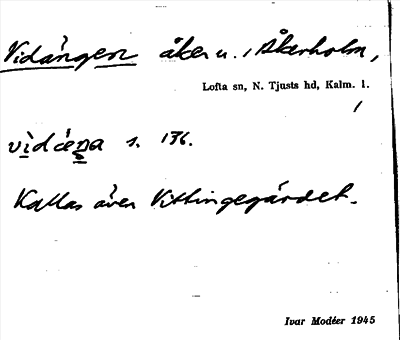 Vidången åker u. / Åkerholm,
Lofta sn, N. Tjusts hd, Kalm. l.
vìdáṉa s. 136.
Kallas även Vittingegärdet.
Ivar Modéer 1945